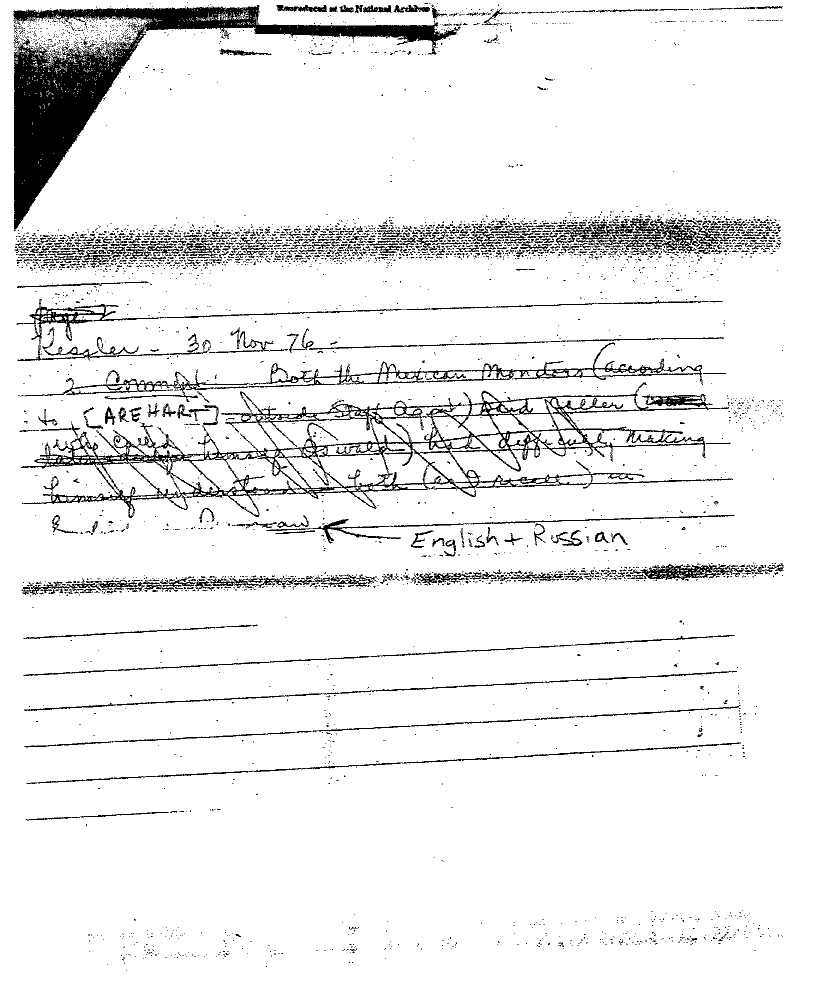 Reproduced at the National Archives
page 2
Kessler - 30 Nov 76 -
2. Comment: Both the Mexican monitors (according
to [AREHART] outside Staff Agent) said caller (
who called himself Oswald) had difficulty making
himself understood - both (as I recall) in
English + Russian